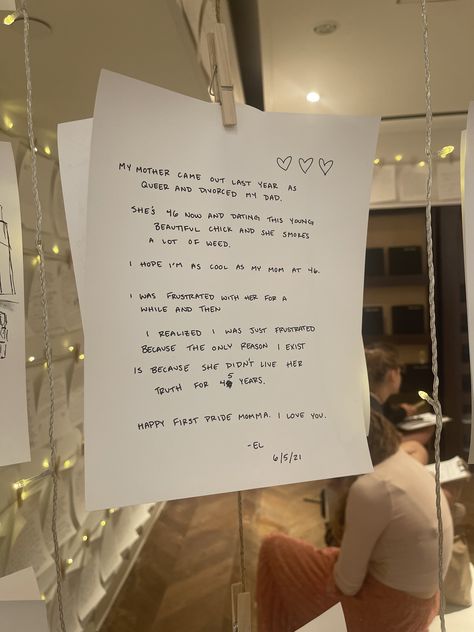 MY MOTHER CAME OUT LAST YEAR AS
QUEER AND DIVORCED MY DAD.
SHE'S 46 NOW AND DATING THIS YOUNG
BEAUTIFUL CHICK AND SHE SMOKES
A LOT OF WEED.
I HOPE I'M AS COOL AS MY MOM AT 46.
I WAS FRUSTRATED WITH HER FOR A
WHILE AND THEN
I REALIZED I WAS JUST FRUSTRATED
BECAUSE THE ONLY REASON I EXIST
IS BECAUSE SHE DIDN'T LIVE HER
TRUTH FOR 45 YEARS.
HAPPY FIRST PRIDE MOMMA. I LOVE YOU.
-EL
6/5/21